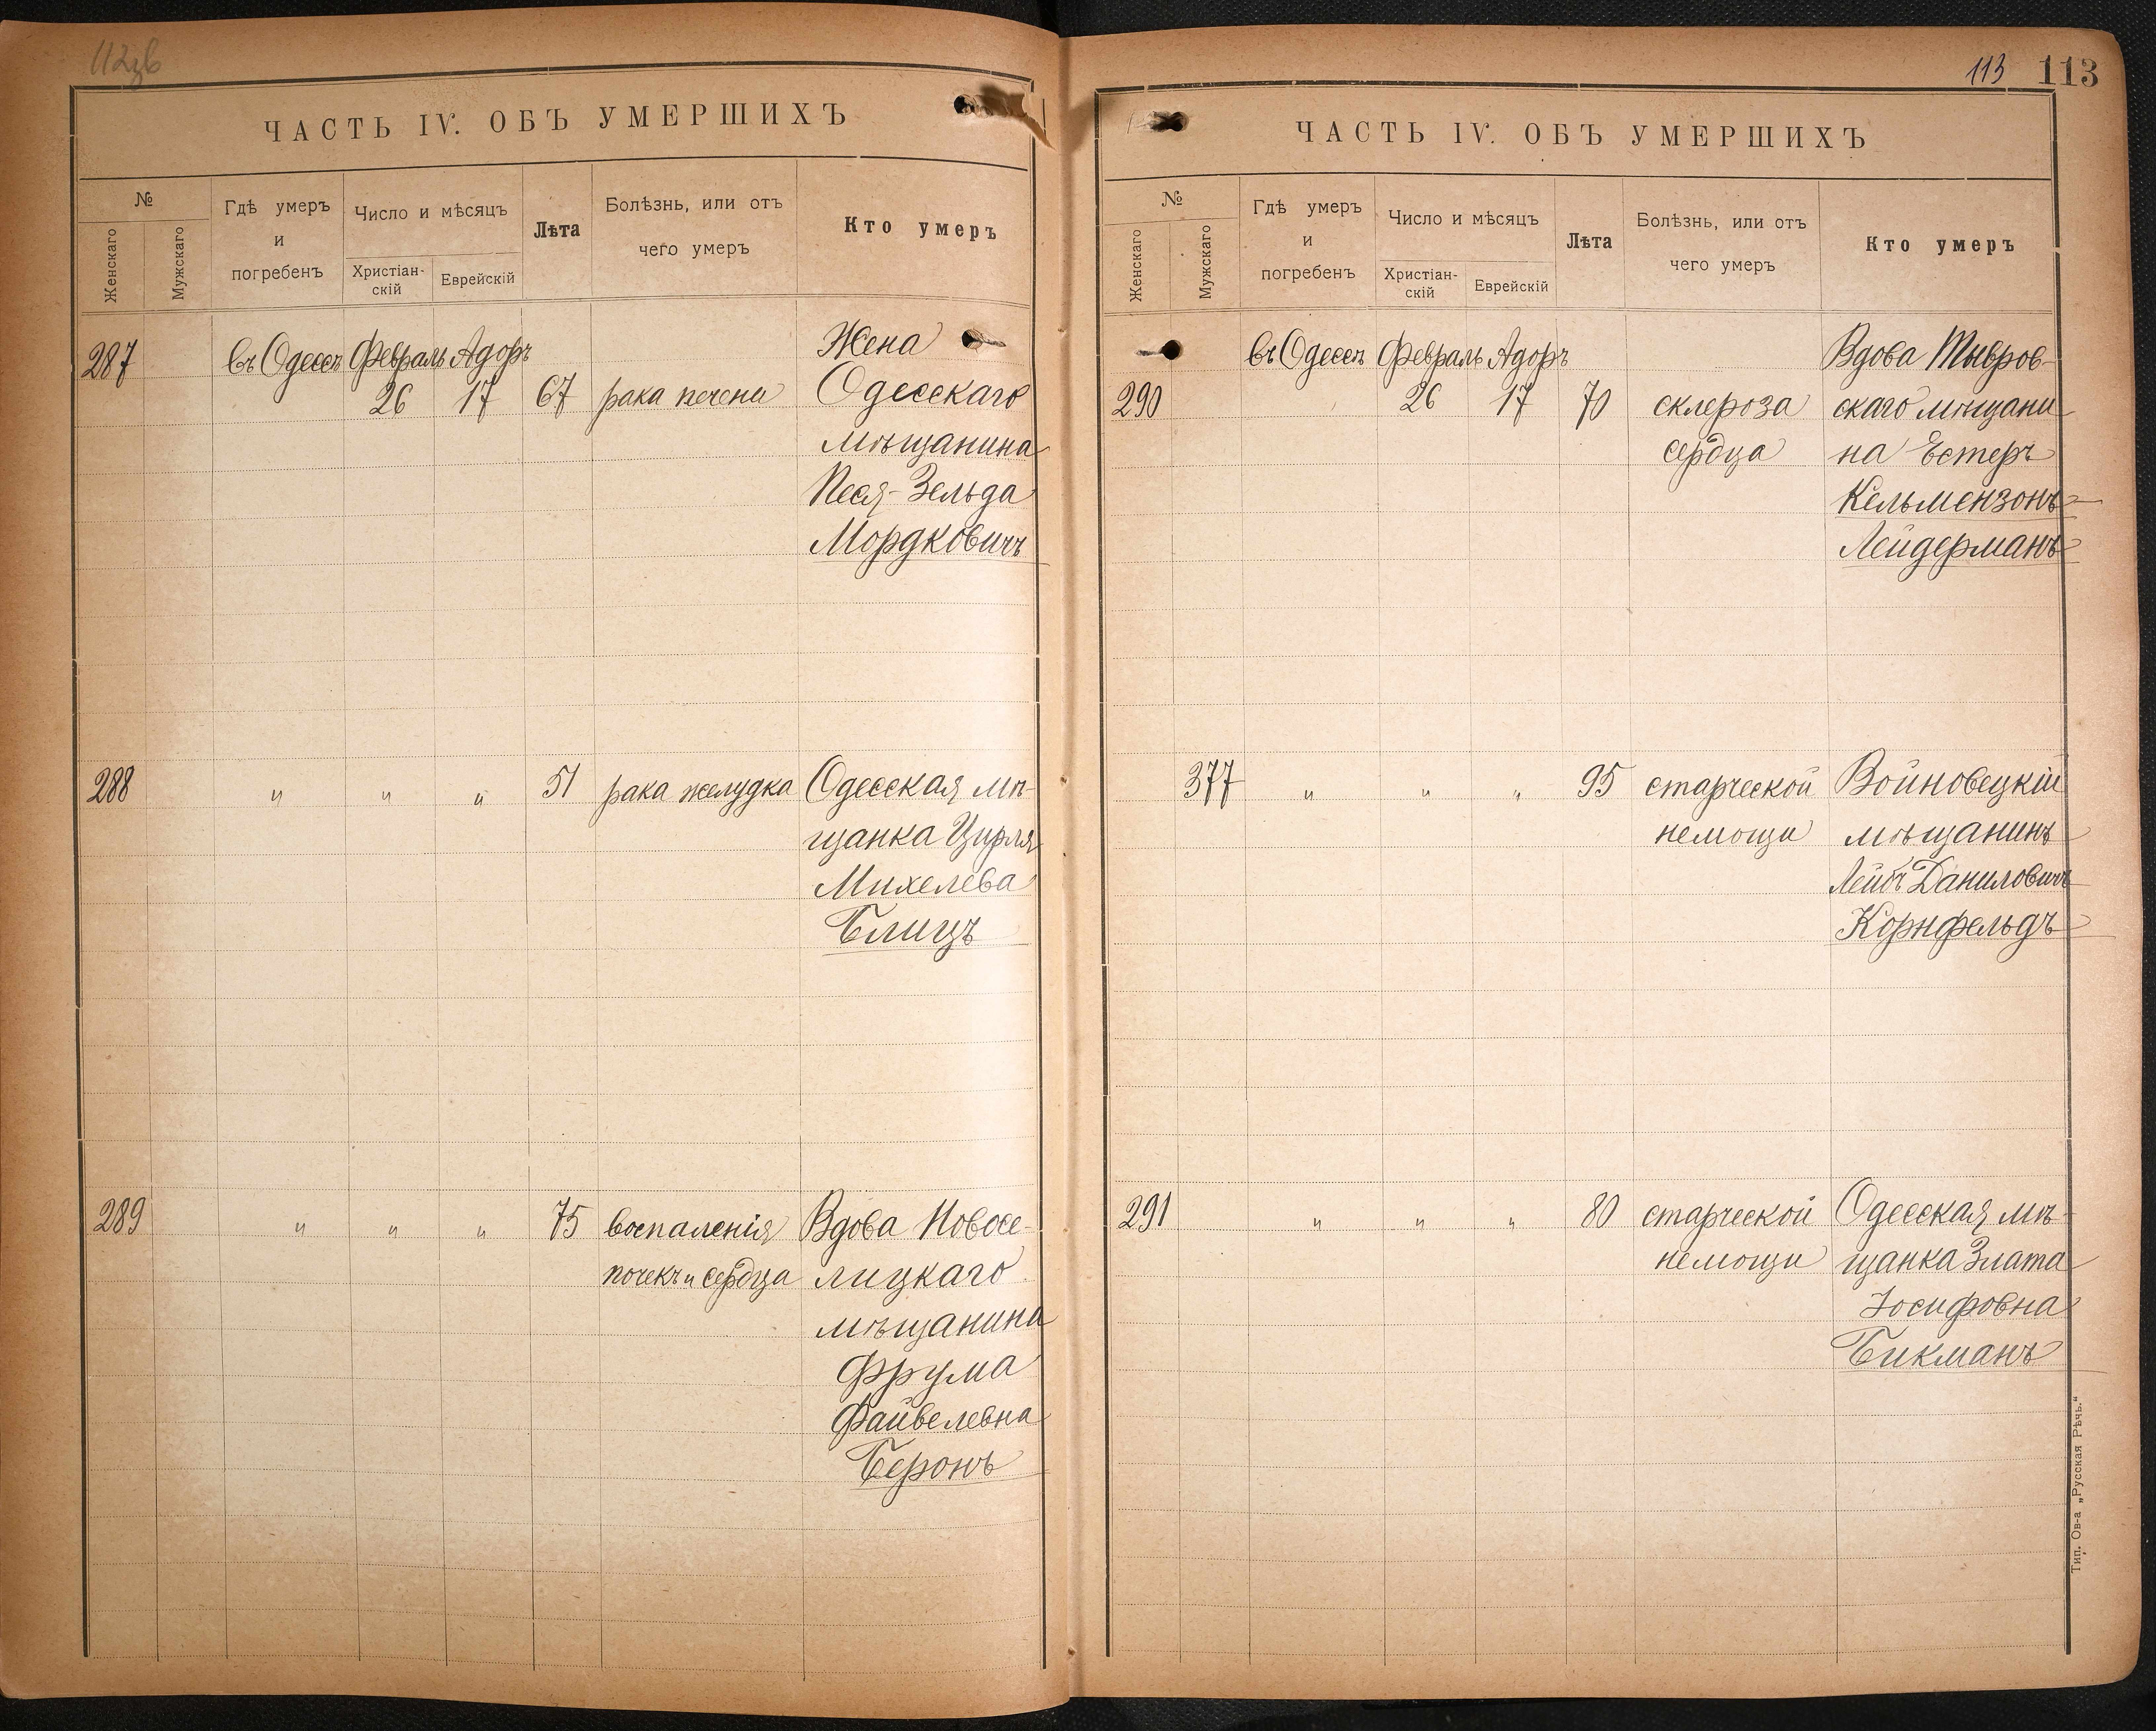 ЧАСТЬ IV. ОБЪ УМЕРШИХЪ
№
Женскаго
Мужскаго
Гдѣ умеръ
и
погребенъ
Число и мѣсяцъ
Христіан-
скій
Еврейскій
Лѣта
Болѣзнь, или отъ
чего умеръ
Кто умеръ
287 въ Одессѣ Февраль Адоръ Жена
26 17 67 рака печени Одесскаго
мѣщанина
Песя-Зельда
Мордковичъ
288 " " " 51 рака желудка Одесская мѣ-
щанка Цирля
Михелева
Блицъ
289 " " " 75 воспаленія Вдова Новосе-
почекъ и сердца лицкаго
мѣщанина
Фрума
Файвелевна
Беронъ
113 113
ЧАСТЬ IV. ОБЪ УМЕРШИХЪ
№
Женскаго
Мужскаго
Гдѣ умеръ
и
погребенъ
Число и мѣсяцъ
Христіан-
скій
Еврейскій
Лѣта
Болѣзнь, или отъ
чего умеръ
Кто умеръ
въ Одессѣ Февраль Адоръ Вдова Тывров-
290 26 17 70 склероза скаго мѣщани
сердца на Естеръ
Кельмензонъ-
Лейдерманъ
377 " " " 95 старческой Войновецкій
немощи мѣщанинъ
Лейбъ Даниловичъ
Корнфельдъ
291 " " " 80 старческой Одесская мѣ-
немощи щанка Злата
Іосифовна
Бикманъ
Тип. Ов-а „Русская Рѣчь."